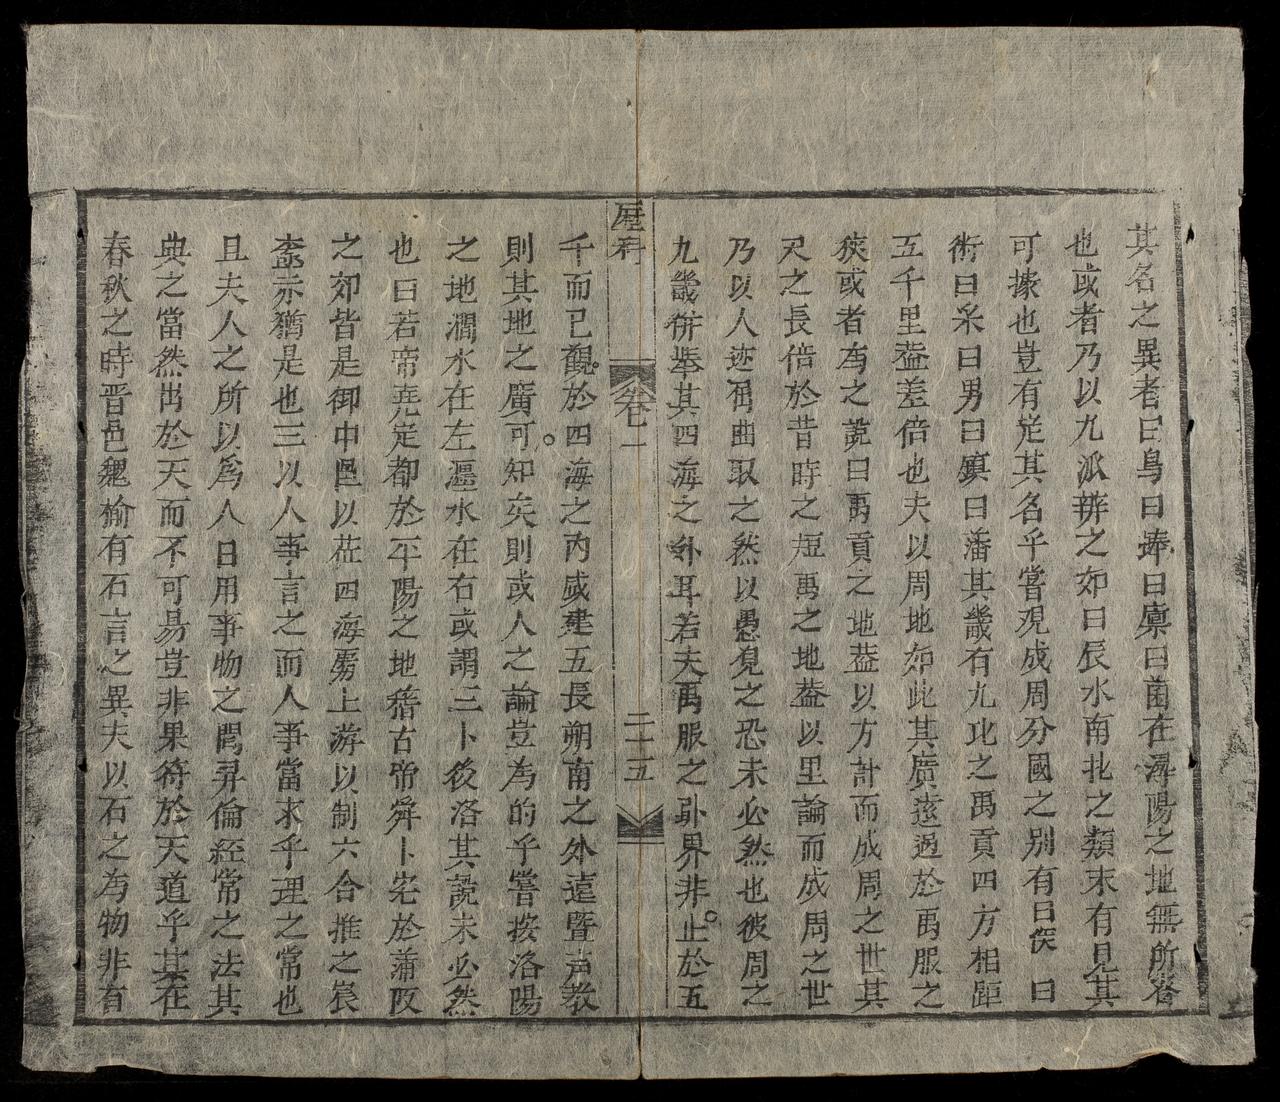 其名之異者曰鳥曰蜯曰廩曰菌在潯陽之地無所考
也或者乃以九派辨之如曰辰水南北之類未有見其
可據也豈有定其名乎嘗观成周分國之別有曰侯曰
衛曰采曰男曰鎮曰潘其畿有九比之禹貢四方相距
五千里葢差倍也夫以周地如此其廣遠過於禹服之
狹或者為之說曰禹貢之地葢以方計而成周之世其
尺之長倍於昔時之短禹之地葢以里論而成周之世
乃以人迹屈曲取之然以愚見之恐未必然也彼周之
九畿併举其四海之外耳若夫禹服之外界非止於五
歷科
卷一
二十五
千而已觀於四海之内咸建五長朔南之外遠暨声教
則其地之廣可知矣則或人之論豈為的乎嘗按洛陽
之地澗水在左瀍水在右或謂三卜後洛其說未必然
也曰若帝堯定都於平陽之地稽古帝舜卜宅於蒲阪
之郊皆是御中邑以莅四海勇上游以制六合推之襄
奎示猶是也三以人事言之而人事當求乎理之常也
且夫人之所以爲人日用事物之間彛倫經常之法其
典之當然出於天而不可易豈非果符於天道乎其在
春秋之時晋邑魏榆有石言之異夫以石之為物非有